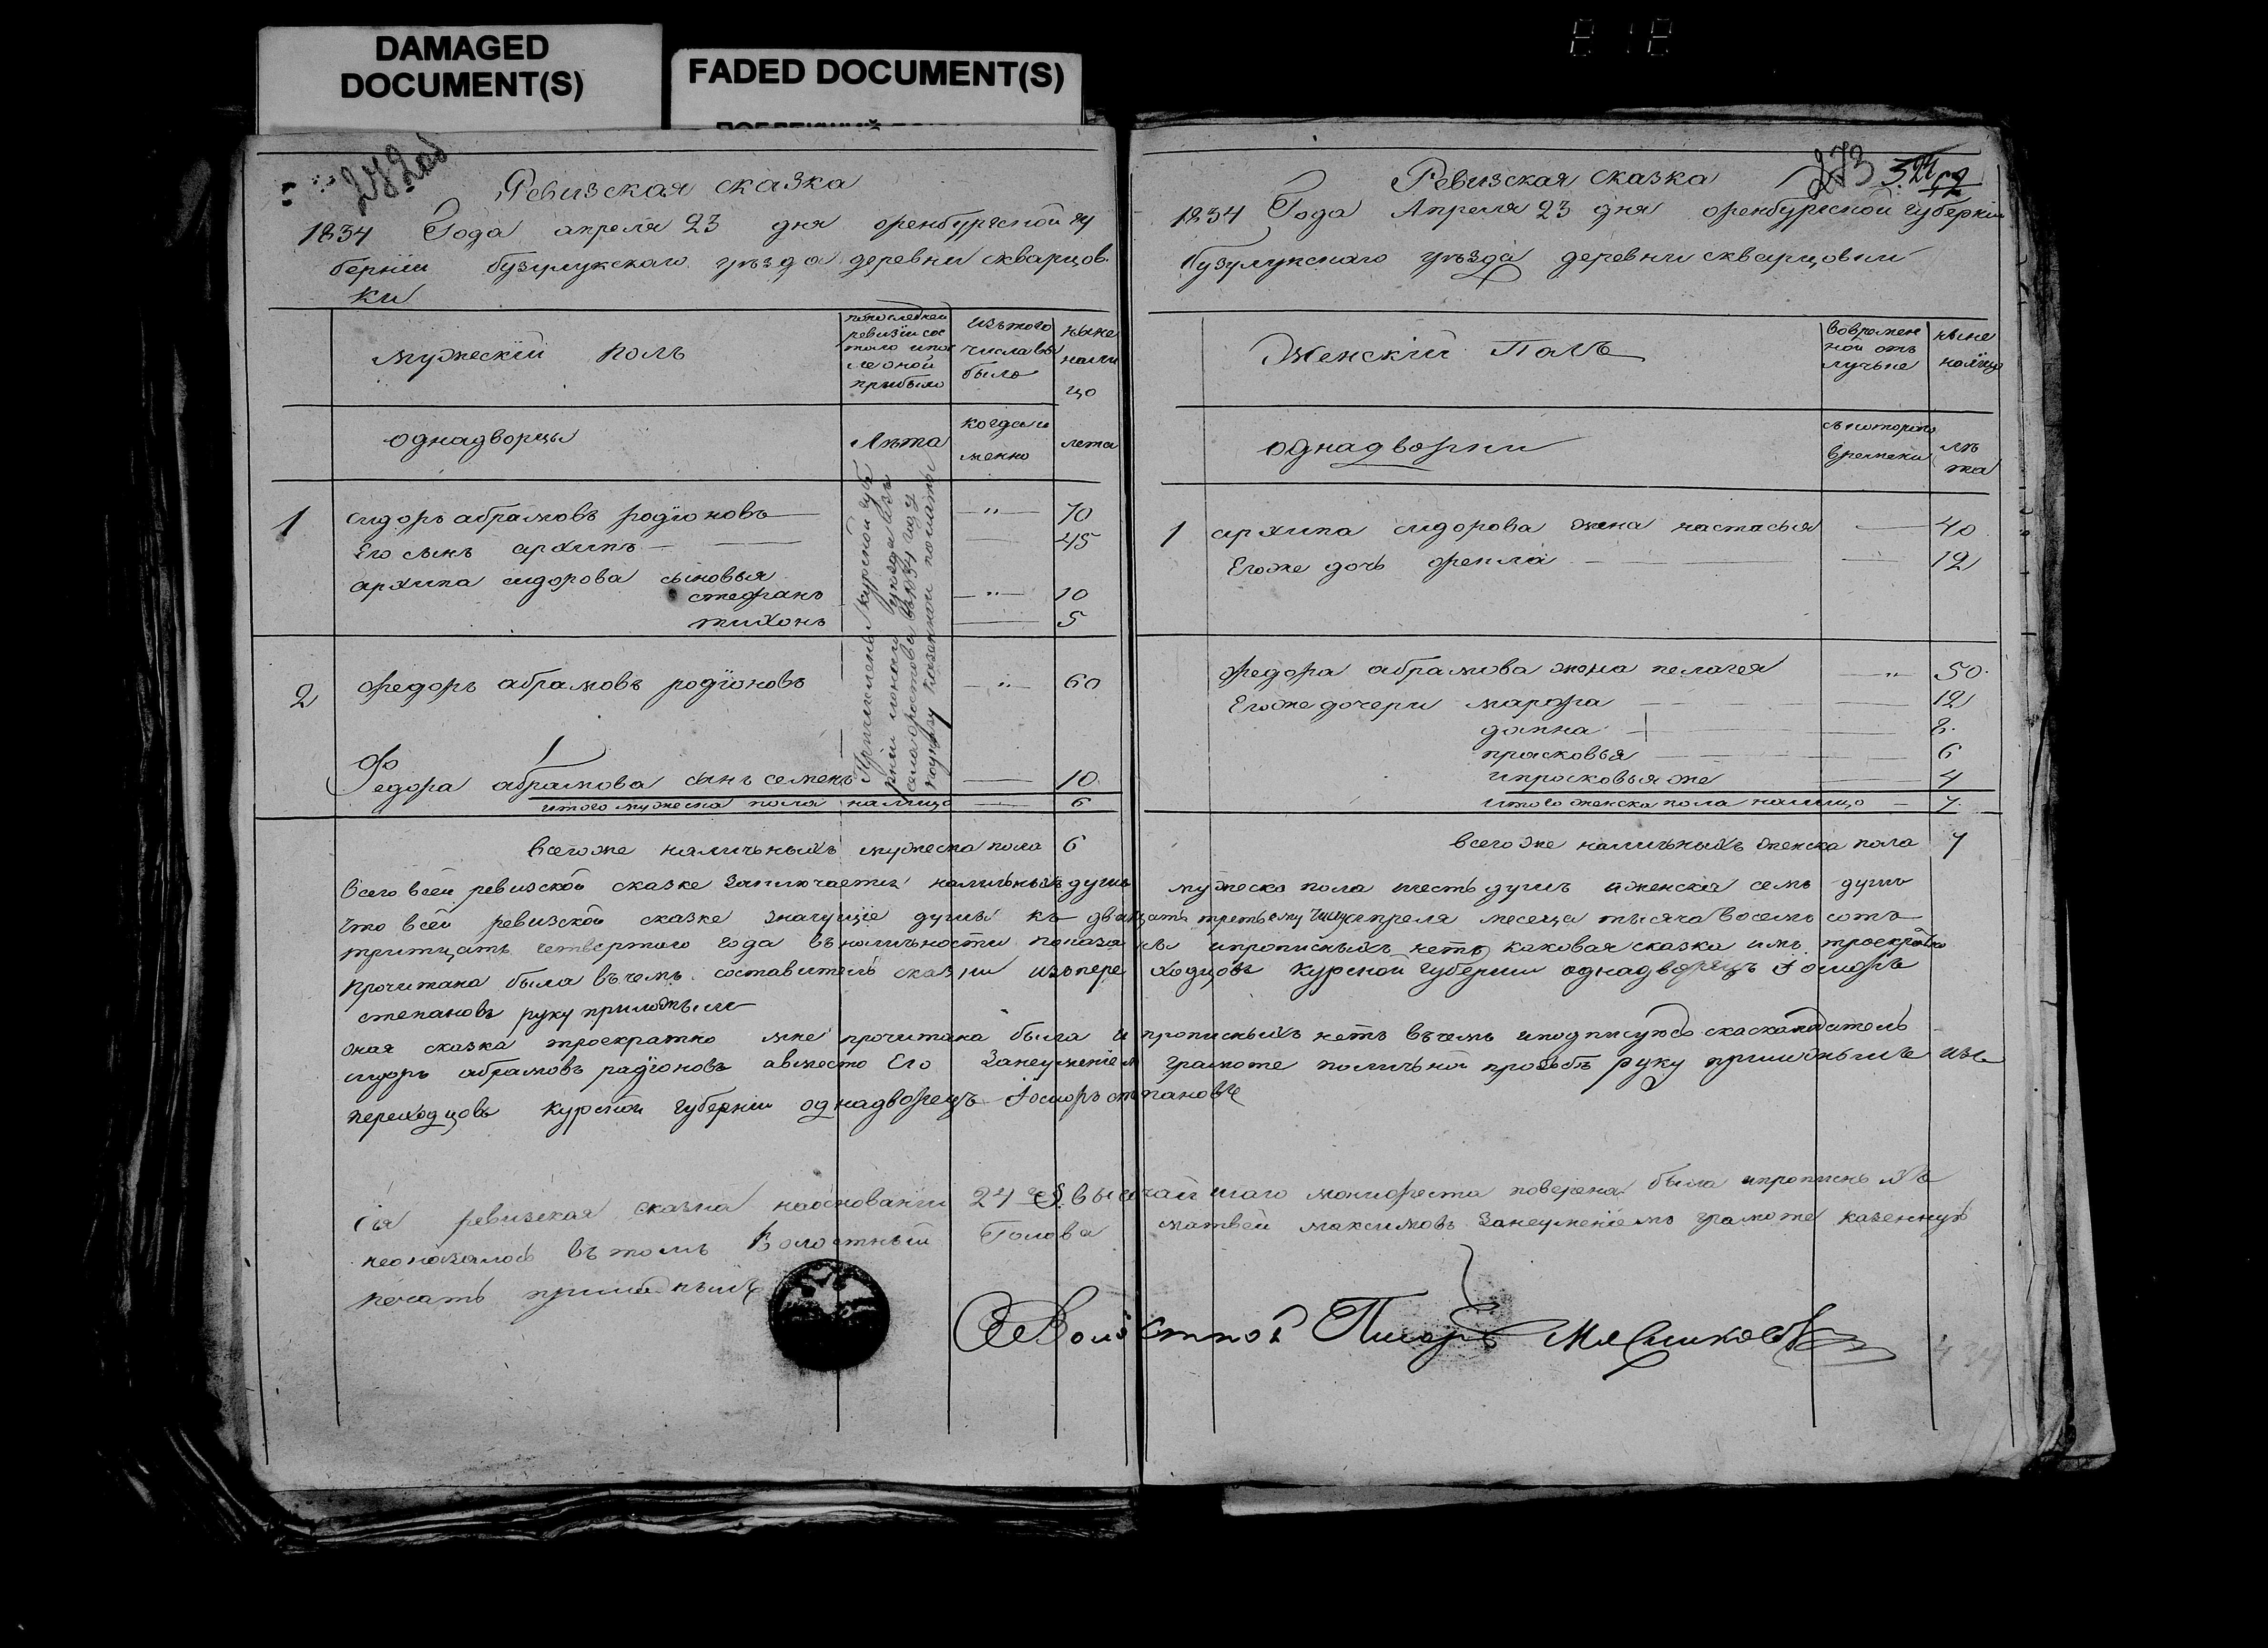 DAMAGED
DOCUMENT(S)
FADED DOCUMENT(S)
272 об
Ревизская сказка
1834 Года апреля 23 дня оренбургской гу
берніи бузулукскаго уъзда деревни скварцов
ки
мужескій полъ
попоследней
ревизіи сос
тояло ипос
ле оной
прибыло
изътого
числа вы
было
ныне
нали
цо
однадворцы
Лъта
когда и
менно
лета
1 сидоръ абрамовъ родіоновъ — " — 70
Его сынъ архипъ — 45
архипа сидорова сыновья
стефанъ — " — 10
тихонъ — 5
2 федоръ абрамовъ родіоновъ — " — 60
Федора абрамова сынъ семенъ — 10
итого мужеска пола налицо — 6
курской губ
рніи
уезда изъ
села 1834 году
казенной полаты
всегоже наличныхъ мужеска пола 6
273
Ревизская сказка
1834 Года Апреля 23 дня оренбургской губерніи
бузулукскаго уъзда деревни скварцовки
Женскій Полъ
вовремен
ной отъ
лучьке
ныне
налицо
однадворки
съкоторого
времени
лъ
та
1 архипа сидорова жена настасья — 40
Егоже дочь фекла — 12
федора абрамова жона пелагея — " — 50
Егоже дочери марфа — 12
домна — 8
прасковья — 6
ипросковья же — 4
Итого женска пола налицо — 7
всего же наличныхъ женска пола 7
Всего всей ревизской сказке Заключается наличныхъ душъ мужеска пола шесть душъ иженска семь душъ
Что всей ревизской сказке значущіе душы къ двацать третьему числу апреля месеца тысяча восемь сотъ
тритцать четвертого года въналичности показаны ипрописныхъ нетъ каковая сказка имъ троекратно
Прочитана была въчемъ составитель сказки изъпере ходцовъ Курской Губерніи однадворецъ
степановъ руку приложилъ
Оная сказка троекратно мне прочитана была и прописныхъ нетъ въчемъ иподписуюсь
сидоръ абрамовъ радіоновъ авместо Его Занеуменіемъ грамоте поличьной прозьбъ руку приложилъ изъ
переходцовъ Курской Губерніи однадворецъ степановъ
Сія ревизская сказка наоснованіи 24 § высочайшаго монифеста поверена была ипрописныхъ
неоказалось въ томъ Волостный Голова матвей максимовъ Занеуменіемъ грамоте казенную
печать приложилъ
Волостной Писарь Мясниковъ